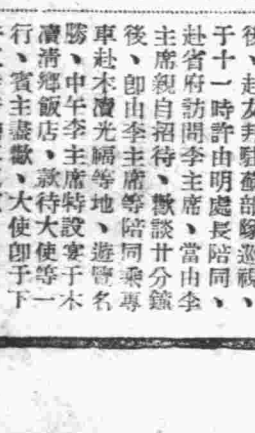 後、赴友邦駐蘇部隊巡視、
于十一時許由明處長陪同、
赴省府訪問李主席、當由李
主席親自招待、歡談廿分鐘
後、卽由李主席等陪同乘專
車赴木瀆光福等地、遊覽名
勝、中午李主席特設宴于木
瀆淸鄉飯店、款待大使等一
行、賓主盡歡、大使卽于下